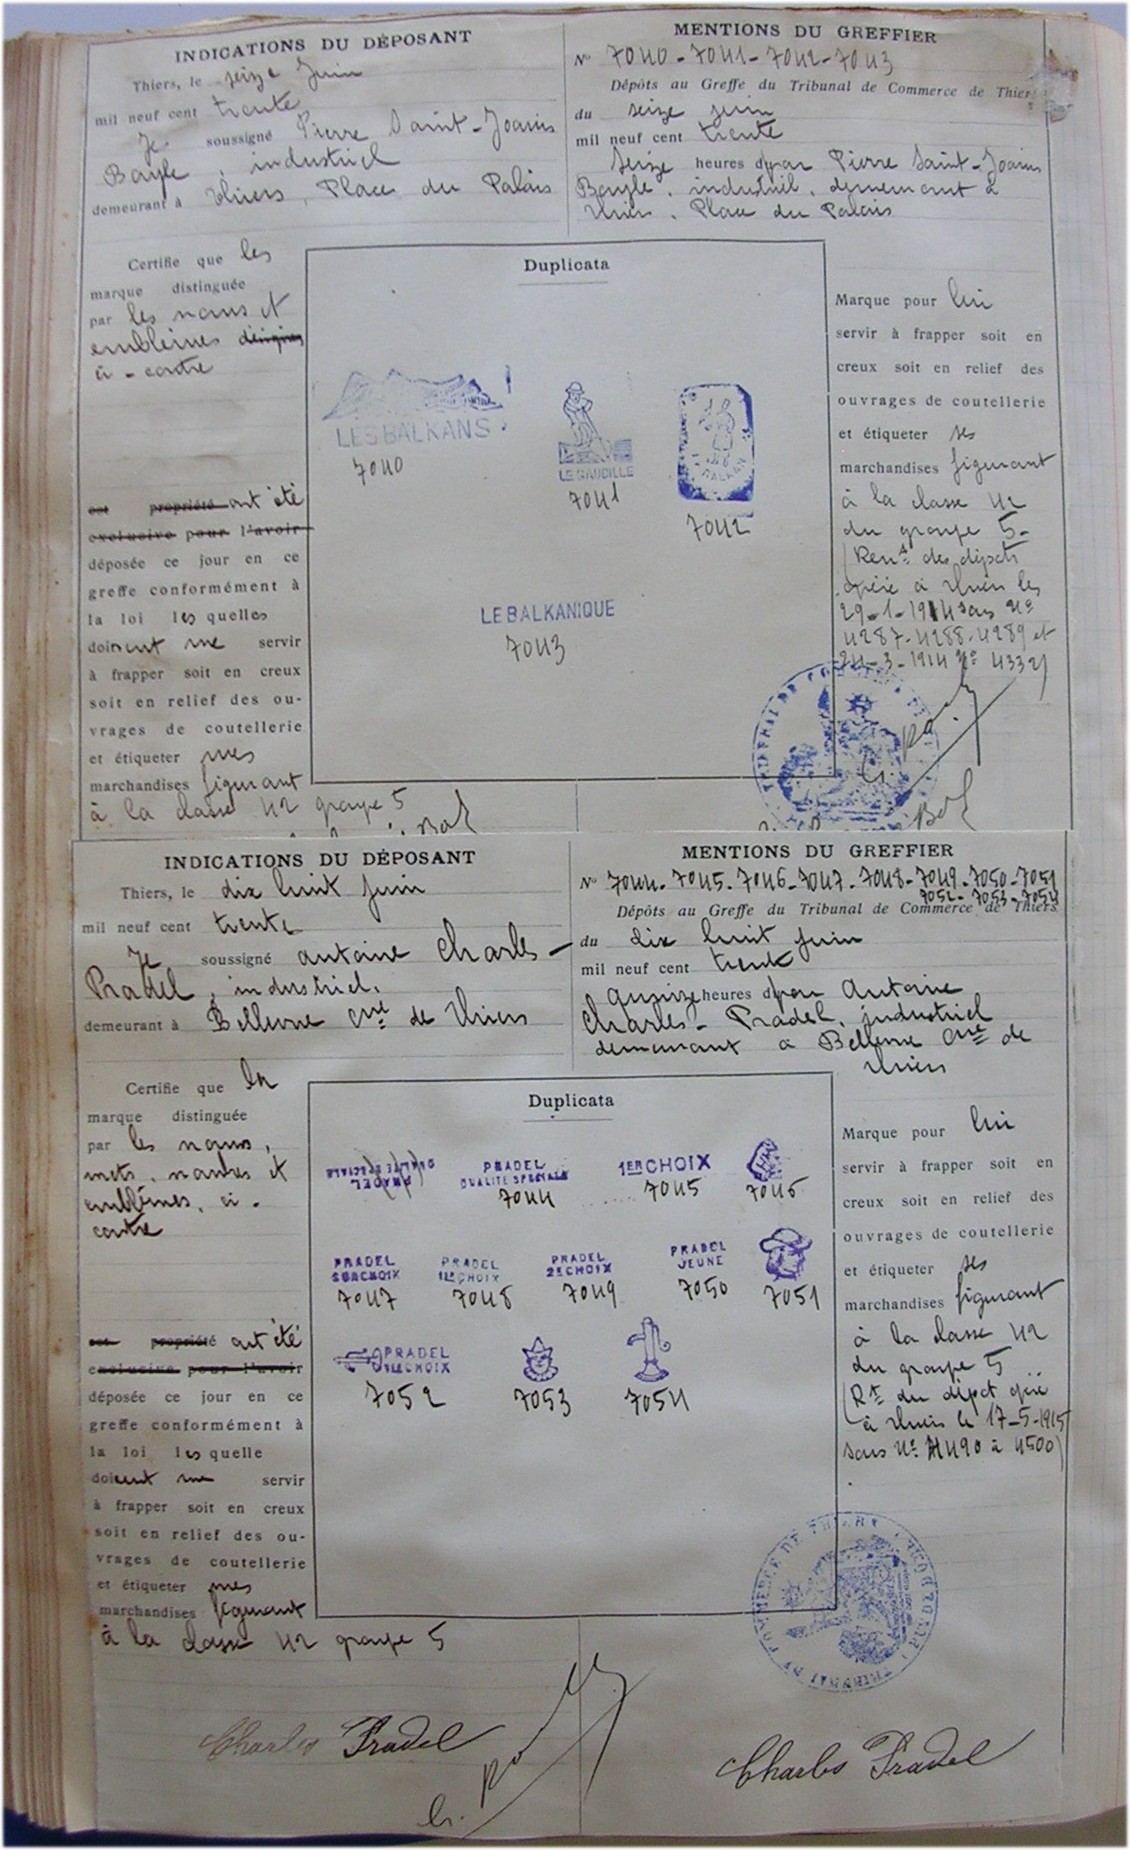 INDICATIONS DU DÉPOSANT
Thiers, le seize Juin
mil neuf cent trente
Je soussigné Pierre Saint-Joanis
Bayle, industriel
demeurant à Thiers, Place du Palais
MENTIONS DU GREFFIER
No 7040-7041-7042-7043
Dépôts au Greffe du Tribunal de Commerce de Thiers
du seize juin
mil neuf cent trente
Seize heures par Pierre Saint-Joanis
Bayle, industriel, demeurant à
Thiers, Place du Palais
Certifie que les
marque distinguée
par les noms et
emblèmes désignés
ci-contre
est propriété ont été
exclusive pour l'avoir
déposée ce jour en ce
greffe conformément à
la loi lesquelles
doivent me servir
à frapper soit en creux
soit en relief des ou-
vrages de coutellerie
et étiqueter mes
marchandises figurant
à la classe 42 groupe 5
Duplicata
LES BALKANS
7040
LE GAUDILLE
7041
7042
LE BALKANIQUE
7043
Marque pour lui
servir à frapper soit en
creux soit en relief des
ouvrages de coutellerie
et étiqueter ses
marchandises figurant
à la classe 42
du groupe 5-
(Rent des dépôts
opéré à Thiers les
29-1-1914 sous No
4287-4288-4289 et
24-3-1914 No 4332)
INDICATIONS DU DÉPOSANT
Thiers, le dix huit juin
mil neuf cent trente
Je soussigné Antoine Charles-
Pradel, industriel.
demeurant à Bellevue Cne de Thiers
MENTIONS DU GREFFIER
No 7044-7045-7046-7047-7048-7049-7050-7051
7052-7053-7054
Dépôts au Greffe du Tribunal de Commerce de Thiers
du dix huit juin
mil neuf cent trente
quinze heures par Antoine
Charles-Pradel, industriel
demeurant à Bellevue Cne de
Thiers
Certifie que la
marque distinguée
par les noms,
mots, nombres et
emblèmes, ci-
contre
est propriété ont été
exclusive pour l'avoir
déposée ce jour en ce
greffe conformément à
la loi lesquelle
doivent me servir
à frapper soit en creux
soit en relief des ou-
vrages de coutellerie
et étiqueter mes
marchandises figurant
à la classe 42 groupe 5
Duplicata
PRADEL
QUALITE SPECIALE
PRADEL
QUALITE SPECIALE
7044
1ER CHOIX
7045
7046
PRADEL
SURCHOIX
7047
PRADEL
1ER CHOIX
7048
PRADEL
2E CHOIX
7049
PRADEL
JEUNE
7050
7051
PRADEL
1ER CHOIX
7052
7053
7054
Marque pour lui
servir à frapper soit en
creux soit en relief des
ouvrages de coutellerie
et étiqueter ses
marchandises figurant
à la classe 42
du groupe 5
(Rt du dépôt opéré
à Thiers le 17-5-1915
sous No 4490 à 4500)
TRIBUNAL DE COMMERCE DE THIERS
Charles Pradel
Charles Pradel